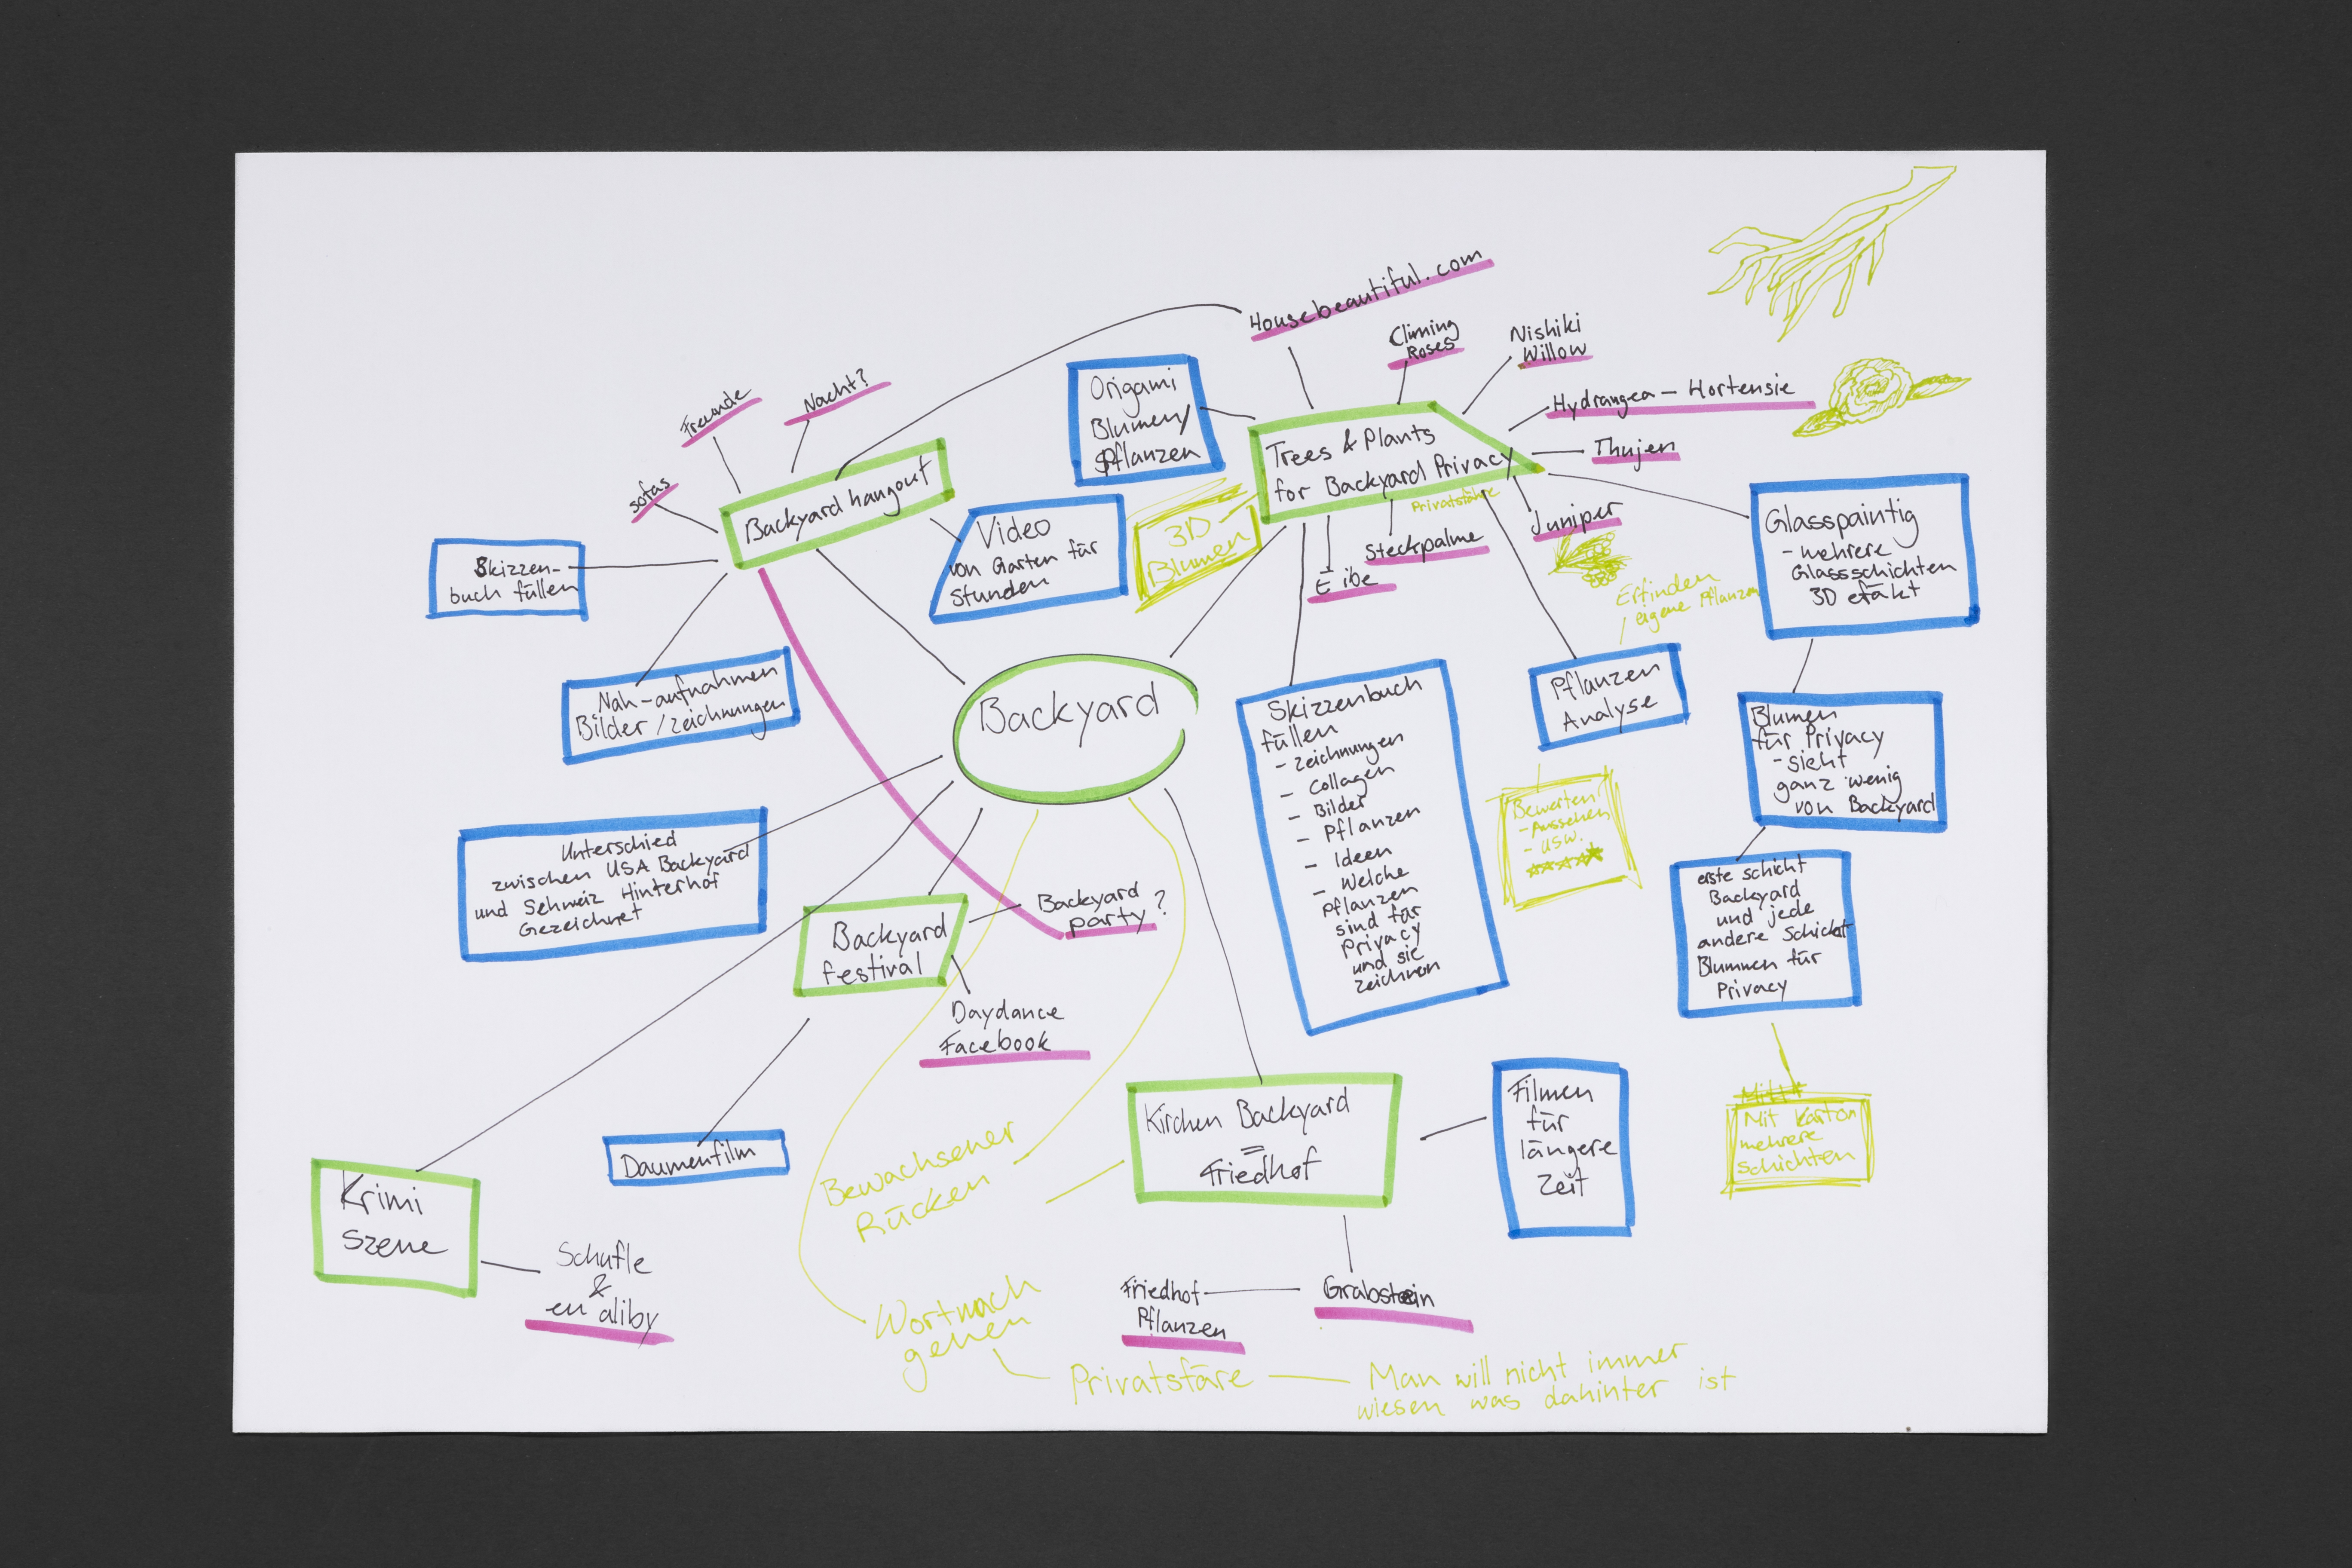 Housebeautiful.com
Climing
Roses
Nishiki
Willow
Hydrangea – Hortensie
Thujen
Juniper
Steckpalme
Eibe
Trees & Plants
for Backyard Privacy
Privatsfähre
Origami
Blumen/
Pflanzen
3D
Blumen
Freunde
Nacht?
sofas
Backyard hangout
Video
von Garten für
Stunden
Skizzen-
buch füllen
Nah-aufnahmen
Bilder/zeichnungen
Backyard
Glasspaintig
- mehrere
Glassschichten
3D efäkt
Erfinden
eigene Pflanzen
Pflanzen
Analyse
Bewerten
- Aussehen
- usw.
Blumen
für Privacy
- sieht
ganz wenig
von Backyard
erste schicht
Backyard
und jede
andere Schicht
Blumnen für
Privacy
Mit Karton
mehrere
schichten
Skizzenbuch
füllen
- zeichnungen
- Collagen
- Bilder
- Pflanzen
- Ideen
- Welche
pflanzen
sind für
Privacy
und sie
zeichnen
Unterschied
zwischen USA Backyard
und Schweiz Hinterhof
Gezeichnet
Backyard
festival
Backyard
party?
Daydance
Facebook
Daumenfilm
Krimi
szene
Schufle
&
en aliby
Bewachsener
Rücken
Kirchen Backyard
=
Friedhof
Filmen
für
längere
Zeit
Grabstein
Friedhof
Pflanzen
Wortnach
gehen
Privatsfäre
Man will nicht immer
wiesen was dahinter ist